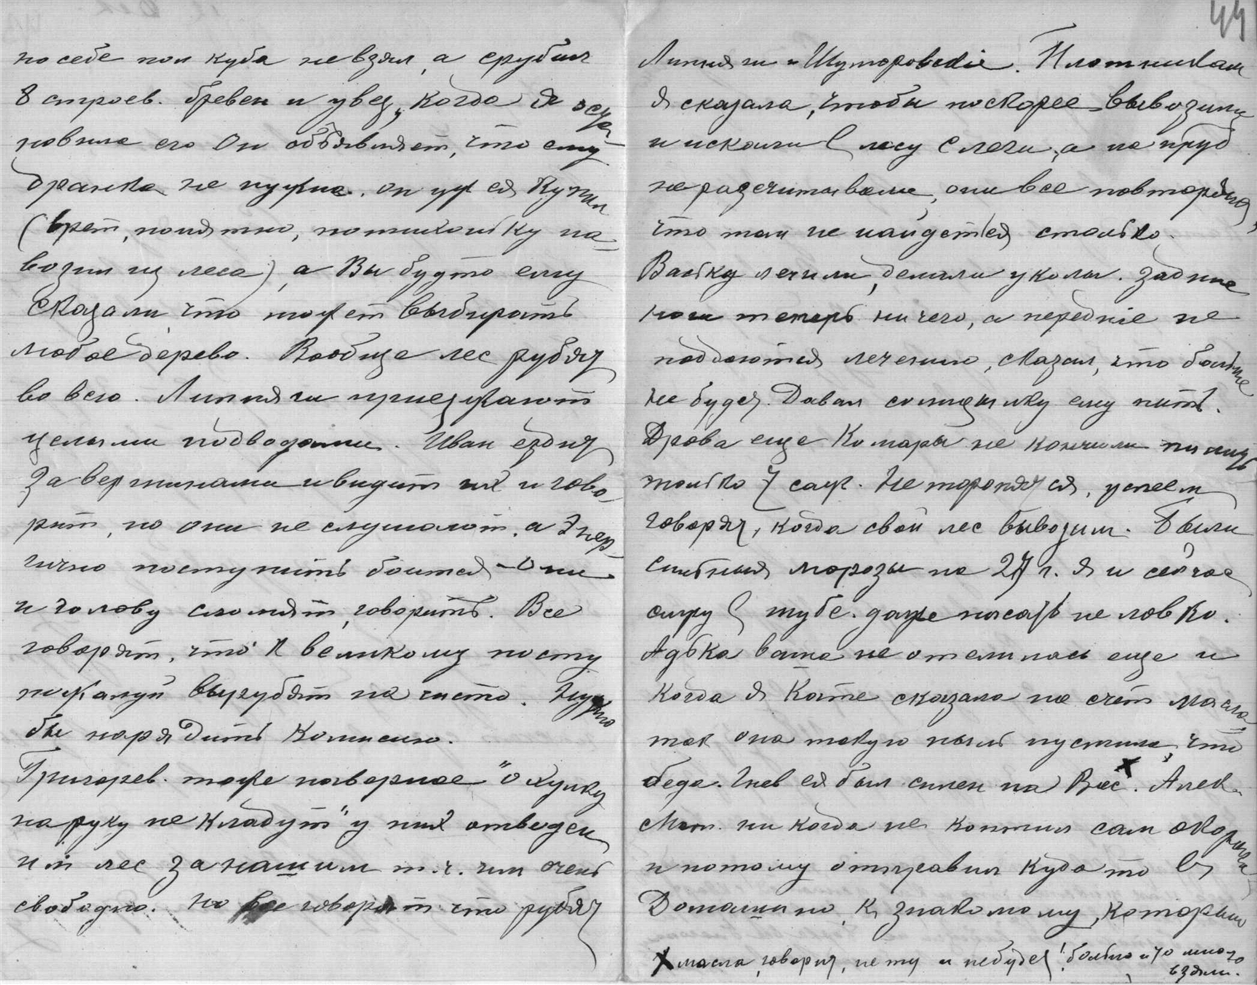 44
по себе пол куба не взял, а срубил
8 строев. бревен и увез, когда я оста-
новила его он объявляет, что ему
дранка не нужна. он уж ея купил
(врет, понятно, потихоньку на-
возил из леса), а Вы будто ему
сказали, что может выбирать
любое дерево. Вообще лес рубят
во всю. Липняги приезжают
целыми подводами. Иван ездит
за вершинами и видит их и гово-
рит, но они не слушают, а энер-
гично поступить боится – они
и голову сломят, говорит. Все
говорят, что к великому посту
пожалуй вырубят на чисто. Нужно
бы нарядить комисию.
Григорев. тоже наверное "охулку
на руку не кладут" у них отведен
и т лес за нашим т.ч. им очень
свободно. Но все говорят что рубят
Липняги и Шуморовские. Плотникам
я сказала, чтобы поскорее вывозили
и искали в лесу слеги, а на пруд
не расчитывали, они все повторяют,
что там не найдется столько.
Ваську лечили, делали уколы. Задние
ноги теперь ничего, а передние не
поддаются лечению, сказал, что больше
не будет. Давал сулицилку ему пить.
Дрова еще Комары не кончили пилить
только 7 саж. Не торопятся, успеем
говорят, когда свой лес вывозим. Были
сильныя морозы на 27 г. Я и сейчас
сижу в шубе. даже писать не ловко.
Адька ваша не отелилась еще и
когда я Кате сказала на счет масла
так она такую пыль пустила, что
беда. Гнев ея был силен на Вас. X Алек.
Мат. никогда не коптил сам окорока
и потому отправил куда то в
Домашино к знакомому, который
X масла, говорит, нету и не будет! больно-то много
взяли.